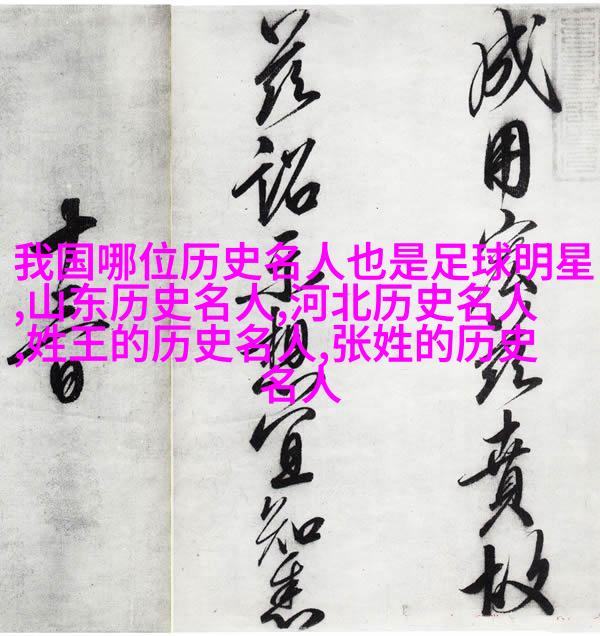 成用宏茲賁故
茲詔示想宜知悉
我国哪位历史名人也是足球明星
,山东历史名人,河北历史名人
,姓王的历史名人,张姓的历史
名人